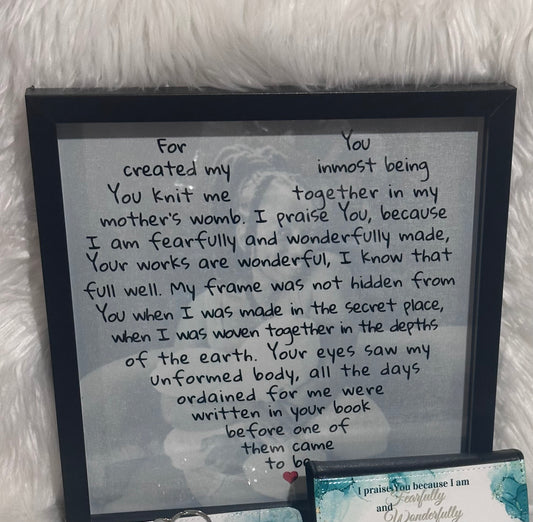 For You
created my inmost being
You knit me together in my
mother's womb. I praise You, because
I am fearfully and wonderfully made,
Your works are wonderful, I know that
full well. My frame was not hidden from
You when I was made in the secret place,
when I was woven together in the depths
of the earth. Your eyes saw my
unformed body, all the days
ordained for me were
written in your book
before one of
them came
to be
I praise You because I am
Fearfully
and
Wonderfully